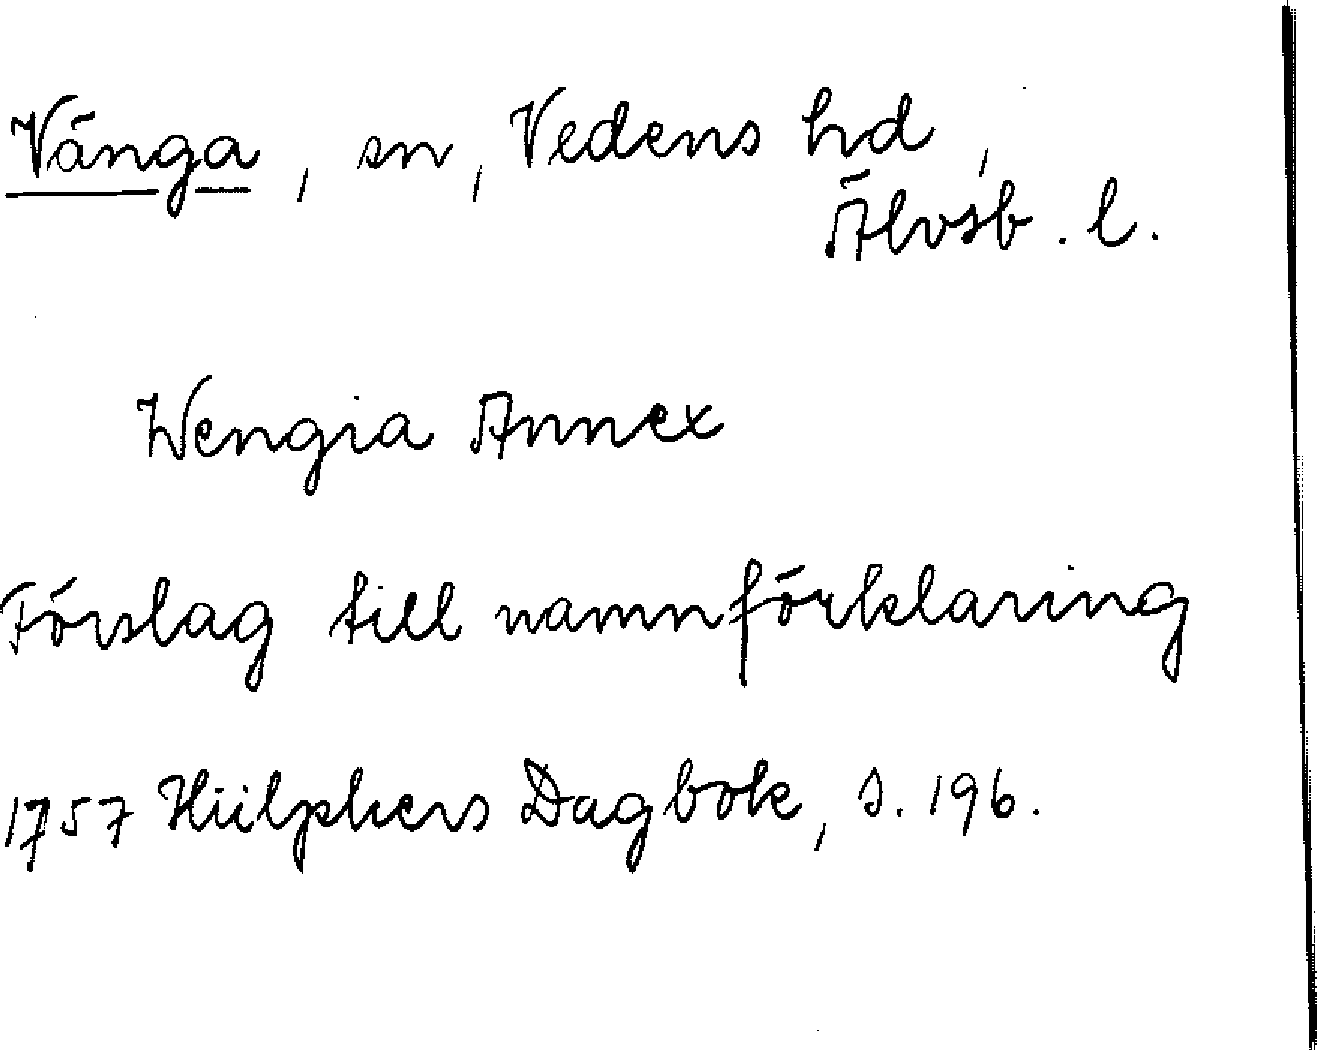 Vänga, sn, Vedens hd,
Älvsb. l.
Wengia Annex
Förslag till namnförklaring
1757 Hülphers Dagbok, s. 196.